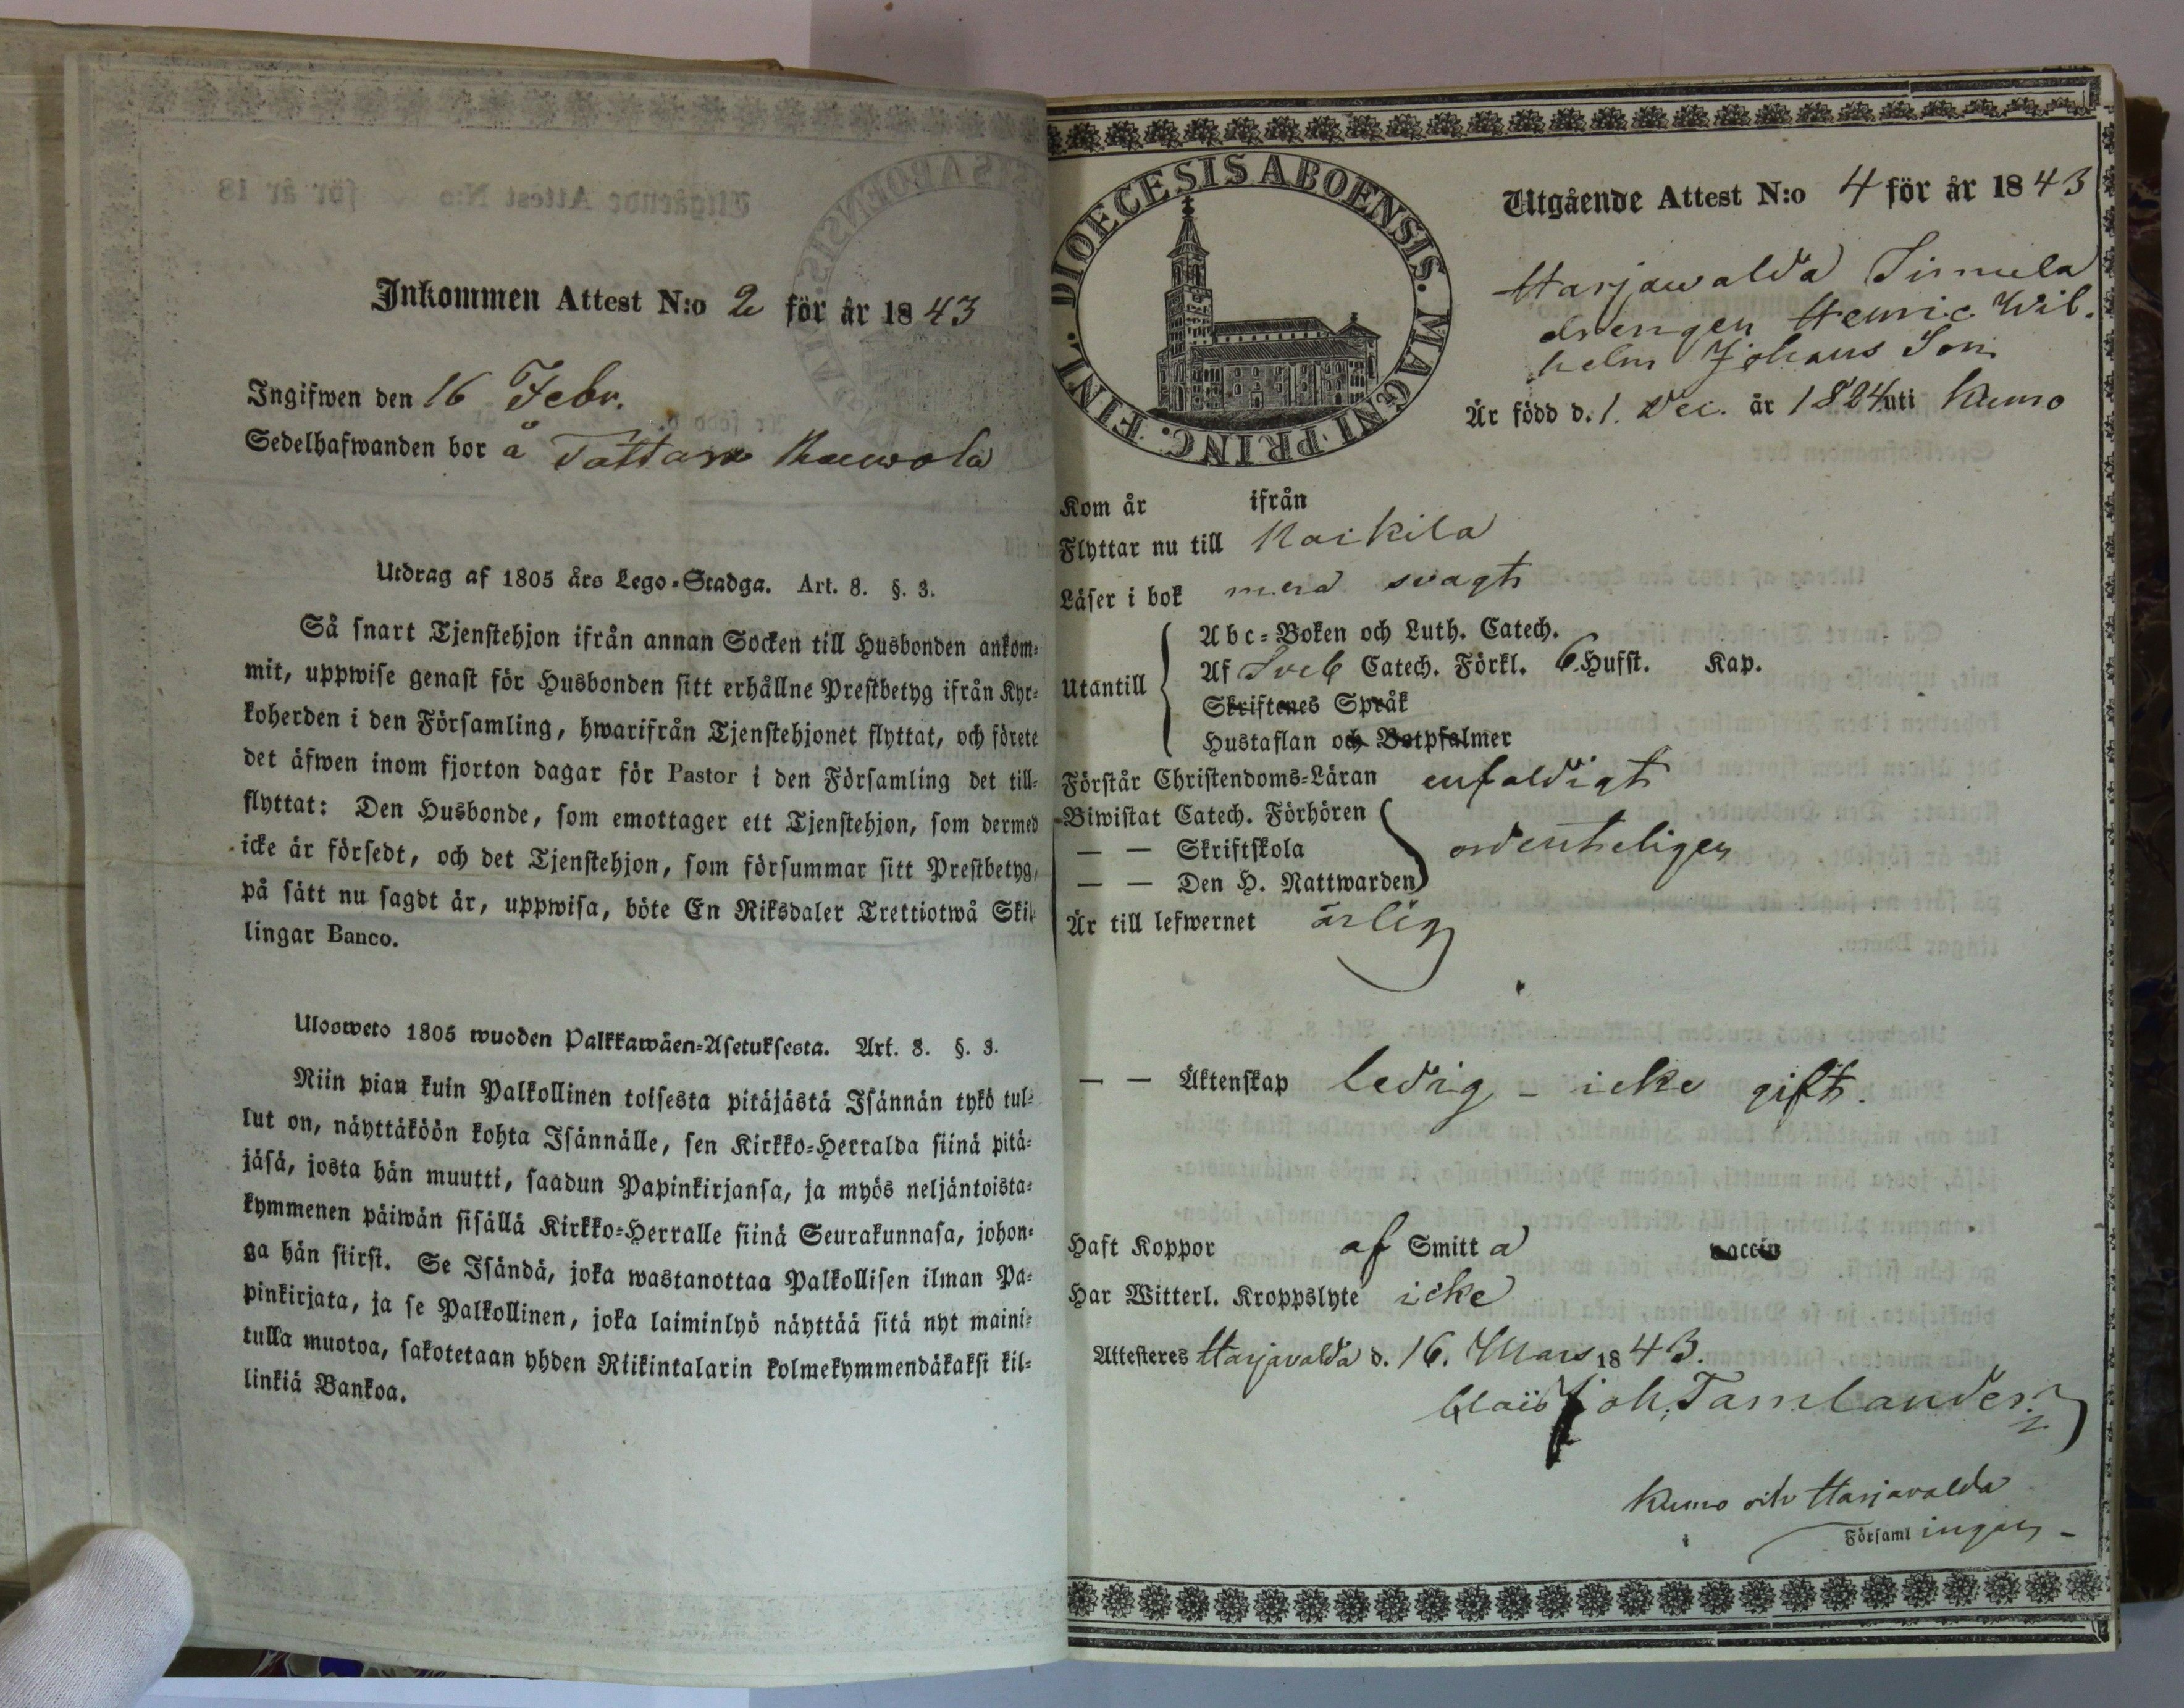 Inkommen Attest N:o 2 för år 1843
Ingifwen den 16 Febr.
Sedelhafwanden bor å
Utdrag af 1805 års Lego-Stadga. Art. 8. §. 3.
Så snart Tjenstehjon ifrån annan Socken till Husbonden ankom-
mit, uppwise genast för Husbonden sitt erhållne Prestbetyg ifrån Kyr-
koherden i den Församling, hwarifrån Tjenstehjonet flyttat, och förete
det äfwen inom fjorton dagar för Pastor i den Församling det till-
flyttat: Den Husbonde, som emottager ett Tjenstehjon, som dermed
icke är försedt, och det Tjenstehjon, som försummar sitt Prestbetyg,
på sätt nu sagdt är, uppwisa, böte En Riksdaler Trettiotwå Skil-
lingar Banco.
Ulosweto 1805 wuoden Palkkawäen-Asetuksesta. Art. 8. §. 3.
Niin pian kuin Palkollinen toisesta pitäjästä Isännän tykö tul-
lut on, näyttäköön kohta Isännälle, sen Kirkko-Herralda siinä pitä-
jäsä, josta hän muutti, saadun Papinkirjansa, ja myös neljäntoista-
kymmenen päiwän sisällä Kirkko-Herralle siinä Seurakunnasa, johon-
ga hän siirsi. Se Isändä, joka wastanottaa Palkollisen ilman Pa-
pinkirjata, ja se Palkollinen, joka laiminlyö näyttää sitä nyt maini-
tulla muotoa, sakotetaan yhden Riikintalarin kolmekymmendäkaksi kil-
linkiä Bankoa.
DIOECESIS ABOENSIS. MAGNI PRINC. FINL.
Utgående Attest N:o 4 för år 1843
Harjawalda Simula
drengen Henric Wil-
helm Johans Son
Är född d. 1. Dec. år 1824 uti Kumo
Kom år ifrån
Flyttar nu till Kaikila
Läser i bok mera svagt
Utantill
Abc-Boken och Luth. Catech.
Af Sveb Catech. Förkl. 6 Hufst. Kap.
Skriftenes Språk
Hustaflan och Botpsalmer
Förstår Christendoms-Läran enfaldigt
Biwistat Catech. Förhören
— — Skriftskola ordenteligen
— — Den H. Nattwarden
Är till lefwernet ärlig
— — Äktenskap ledig - icke gift.
Haft Koppor af Smitta vaccin
Har Witterl. Kroppslyte icke
Attesteres Harjavalda d. 16. Mars 1843.
Joh. Tamlander
Kumo och Harjavalda
Församlingar